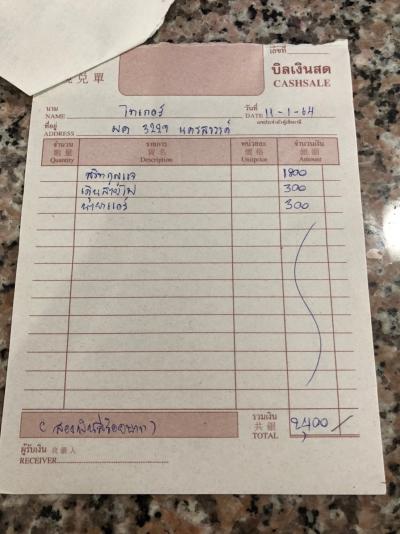 兌單
เลขที่
บิลเงินสด
CASHSALE
นาม
NAME
ไทเกอร์
วันที่
DATE 11-1-64
ที่อยู่
ADDRESS
3229 นครสวรรค์
เลขประจำตัวผู้เสียภาษี
จำนวน รายการ หน่วยละ จำนวนเงิน
數量 貨名 價格 銀額
Quantity Description Unitprice Amount
สวิทกุญแจ 1800
เดินสายไฟ 300
น้ำยาแอร์ 300
รวมเงิน
共銀
TOTAL
2,400
(สองพันสี่ร้อยบาท)
ผู้รับเงิน 收銀人
RECEIVER